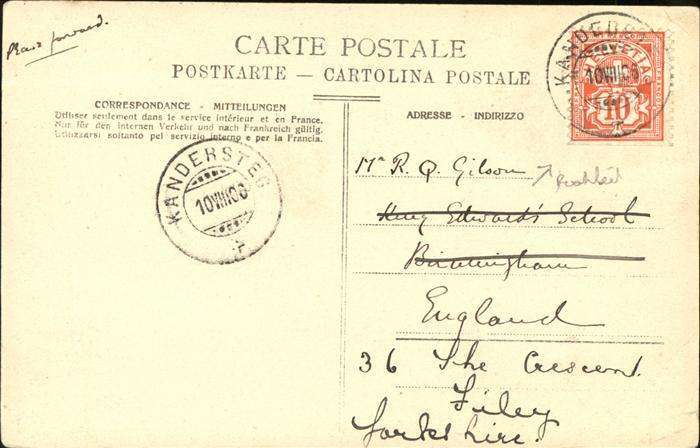 Please forward.
CARTE POSTALE
POSTKARTE — CARTOLINA POSTALE
CORRESPONDANCE - MITTEILUNGEN
Utiliser seulement dans le service intérieur et en France.
Nur für den internen Verkehr und nach Frankreich gültig.
Utilizzarsi soltanto pel servizio interno e per la Francia.
ADRESSE - INDIRIZZO
KANDERSTEG
10 VIII 06
HELVETIA
10
KANDERSTEG
10 VIII 06
Mr R. Q. Gilson
King Edward's School
Birmingham
England
36 The Crescent
Filey
Yorkshire.